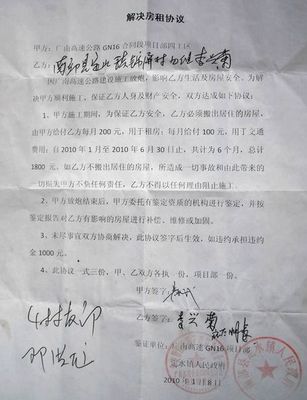 解决房租协议
甲方：广南高速公路 GN16 合同段项目部四工区
乙方：南部县定水镇
因广南高速公路建设施工放炮，影响乙方生活及房屋安全。为
解决甲方顺利施工、保证乙方人身及财产安全，双方达成如下协议：
1、甲方施工期间，为保证乙方安全，乙方必须搬出居住的房屋，
由甲方给付乙方每月 200 元，用于租房；每月给付 100 元，用于交通
费用；自 2010 年 1 月至 2010 年 6 月 30 日止，共计为 6 个月，总计
1800 元。如乙方不搬出居住的房屋，所造成一切事故和由此带来的
一切损失甲方不负任何责任，乙方不再以任何理由阻止施工。
2、甲方放炮结束后，甲方委托有鉴定资质的机构进行鉴定，并按
鉴定报告对乙方有影响的房屋进行补偿、维修或加固。
3、未尽事宜双方协商解决，此协议签字后生效，如违约承担违约
金 1000 元。
4、此协议一式三份，甲、乙双方各执一份，项目部一份。
甲方签字：
乙方签字：李兴
鉴证单位：广南高速 GN16 项目部
定水镇人民政府
2010 年 1 月 8 日